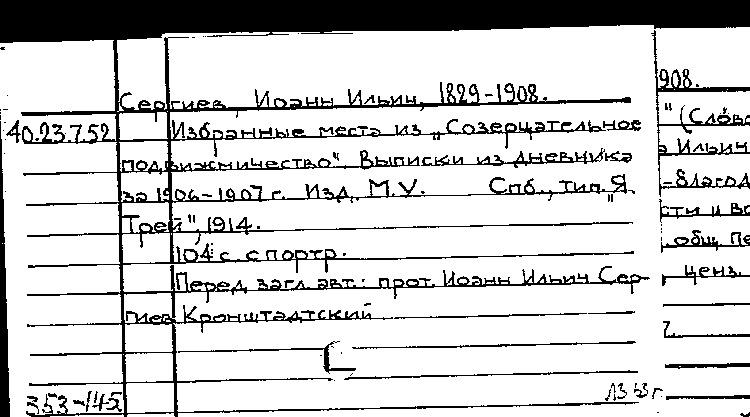 Сергиев, Иоанн Ильич, 1829-1908.
40.23.7.52 Избранные места из „Созерцательное
подвижничество". Выписки из дневника
за 1906-1907 г. Изд. М.У. Спб., тип. „Я.
Трей", 1914.
104 с. с портр.
Перед загл. авт.: прот. Иоанн Ильич Сер-
гиев Кронштадтский
353-145
908.
" (Слово
Ильич
благод
сти и
общ. Пе
ценз.